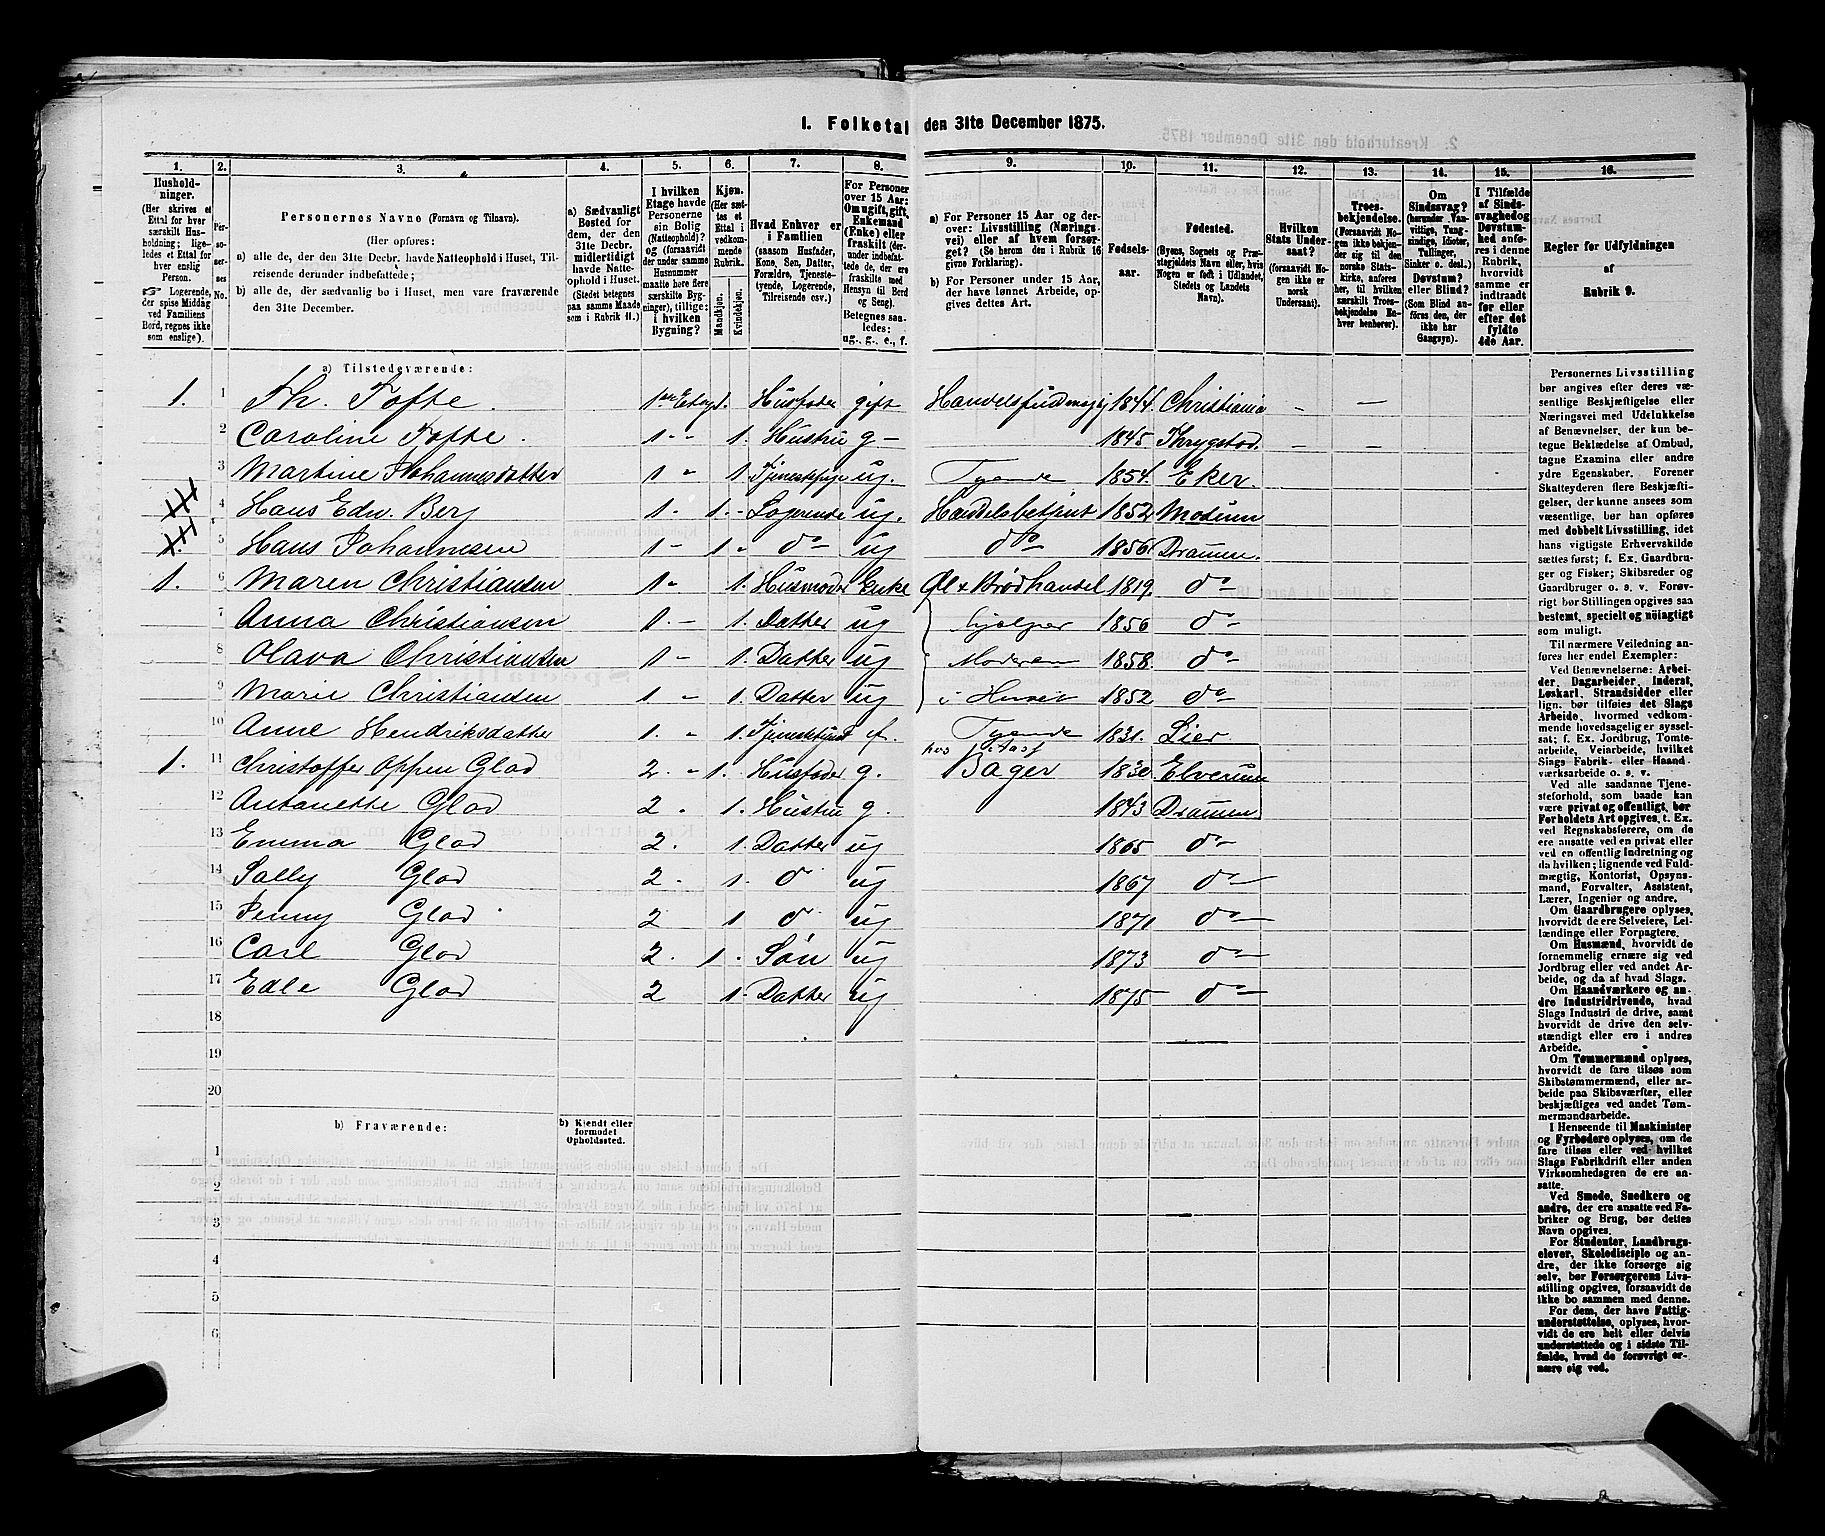 1. Folketal den 31te December 1875.
1. 2. 3. 4. 5. 6. 7. 8. 9. 10. 11. 12. 13. 14. 15. 16.
Husholdninger. (Her skrives et Ettal for hver særskilt Husholdning; ligeledes et Ettal for hver enslig Person. ☞ Logerende, der spise Middag ved Familiens Bord, regnes ikke som enslige).
Personernes No.
Personernes Navne (Fornavn og Tilnavn).
(Her opføres:
a) alle de, der den 31te Decbr. havde Natteophold i Huset, Tilreisende derunder indbefattede;
b) alle de, der sædvanlig bo i Huset, men vare fraværende den 31te December.
a) Sædvanligt Bosted for dem, der den 31te Decbr. midlertidigt havde Natteophold i Huset. (Stedet betegnes paa samme Maade som i Rubrik 11.)
I hvilken Etage havde Personerne sin Bolig (Natteophold)? og (forsaavidt der under samme Husnummer maatte høre flere særskilte Bygninger), tillige: i hvilken Bygning?
Kjøn. (Her sættes et Ettal i vedkommende Rubrik. Mandkjøn. Kvindekjøn.
Hvad Enhver er i Familien (saasom Husfader, Kone, Søn, Datter, Forældre, Tjenestetyende, Logerende, Tilreisende osv.)
For Personer over 15 Aar: Om ugift, gift, Enkemand (Enke) eller fraskilt (derunder indbefattede de, der ere fraskilte med Hensyn til Bord og Seng). Betegnes saaledes: ug., g., e., f.
a) For Personer 15 Aar og derover: Livsstilling (Næringsvei) eller af hvem forsørget? (Se herom den i Rubrik 16 givne Forklaring).
b) For Personer under 15 Aar, der have lønnet Arbeide, opgives dettes Art.
Fødselsaar.
Fødested. (Byens, Sognets og Præstegjeldets Navn eller, hvis Nogen er født i Udlandet, Stedets og Landets Navn).
Hvilken Stats Undersaat? (forsaavidt Nogen ikke er norsk Undersaat).
Troesbekjendelse. (Forsaavidt Nogen ikke bekjender sig til den norske Statskirke, anføres her, til hvilken særskilt Troesbekjendelse Enhver henhører).
Om Sindssvag? (herunder Vanvittige, Tungsindige, Idioter, Tullinger, Sinker o. desl.) Døvstum? eller Blind? (Som Blind anføres den, der ikke har Gangsyn).
I Tilfælde af Sindssvaghed og Døvstumhed anføres i denne Rubrik, hvorvidt samme er indtraadt før eller efter det fyldte 4de Aar.
Regler for Udfyldningen af Rubrik 9.
a) Tilstedeværende:
1. 1 Th. Tofte. 1ste Etage 1. Husfader gift Handelsfuldmægtig 1844. Christiania - -
2 Caroline Tofte. 1 - - 1. Hustru g - 1845 Thrygstad. - -
3 Martine Johannesdatter 1 " 1. Tjenestepige ug. Tyende 1854. Eker.
4 Hans Edw. Berg 1 - 1. - Logerende ug. Handelsbetjent 1852 Modum
5 Hans Johannesen 1 - 1 " do - ug do 1856 Drammen.
1. 6 Maren Christiansen 1 " 1. Husmoder Enke Øl & Brødhandel 1819. do -
7 Anna Christiansen 1. - 1. Datter ug hjelper 1856 do -
8 Olava Christiansen 1 - 1. Datter ug Moderen 1858. do -
9 Marie Christiansen 1 - 1. Datter ug i Huset 1852 do -
10 Anne Hendriksdatter 1. " 1. Tjenestetyende f. Tyende 1831. Lier
hos
1. 11 Christoffer Oppen Glad 2. - 1. Husfader g. Bager 1830 Elverum
12 Antonette Glad 2. 1. Hustru g. 1843 Drammen
13 Emma Glad 2. 1. Datter ug 1865 do -
14 Sally Glad 2. 1. do ug 1867 do -
15 Jenny Glad 2 1 do ug 1871 do -
16 Carl Glad 2. 1. Søn ug 1873 do -
17 Edle Glad 2 1. Datter ug 1875 - do -
18
19
20
b) Fraværende: b) Kjendt eller formodet Opholdssted.
1
2
3
4
5
6
Personernes Livsstilling
bør angives efter deres væsentlige Beskjæftigelse eller
Næringsvei med Udelukkelse
af Benævnelser, der kun betegne Beklædelse af Ombud,
tagne Examina eller andre
ydre Egenskaber. Forener
Skatteyderen flere Beskjæftigelser, der kunne ansees som
væsentlige, bør han opføres
med dobbelt Livsstilling, idet
hans vigtigste Erhvervskilde
sættes først; f. Ex. Gaardbruger og Fisker; Skibsreder og
Gaardbruger o. s. v. Forøvrigt bør Stillingen opgives saa
bestemt, specielt og nøiagtigt
som muligt.
Til nærmere Veiledning anføres her endel Exempler:
Ved Benævnelserne: Arbeider, Dagarbeider, Inderst,
Løskarl, Strandsidder eller
lign. bør tilføies det Slags
Arbeide, hvormed vedkommende hovedsagelig er sysselsat; f. Ex. Jordbrug, Tomtearbeide, Veiarbeide, hvilket
Slags Fabrik- eller Haandværksarbeide o. s. v.
Ved alle saadanne Tjenesteforhold, som baade kan
være privat og offentligt, bør
Forholdets Art opgives, t. Ex.
ved Regnskabsførere, om de
ere ansatte ved en privat eller
ved en offentlig Indretning og
da hvilken; lignende ved Fuldmægtig, Kontorist, Opsynsmand, Forvalter, Assistent,
Lærer, Ingeniør og andre.
Om Gaardbrugere oplyses,
hvorvidt de ere Selveiere, Leilændinge eller Forpagtere.
Om Husmænd, hvorvidt de
fornemmelig ernære sig ved
Jordbrug eller ved andet Arbeide, og da af hvad Slags.
Om Haandværkere og andre Industridrivende, hvad
Slags Industri de drive, samt
hvorvidt de drive den selvstændigt eller ere i andres
Arbeide.
Om Tømmermænd oplyses,
hvorvidt de fare tilsøs som
Skibstømmermænd, eller arbeide paa Skibsværfter, eller
beskjæftiges ved andet Tømmermandsarbeide.
I Henseende til Maskinister
og Fyrbødere oplyses, om de
fare tilsøs eller ved hvilket
Slags Fabrikdrift eller anden
Virksomhedsgren de ere ansatte.
Ved Smede, Snedkere og
andre, der ere ansatte ved Fabriker og Brug, bør dettes
Navn opgives.
For Studenter, Landbrugselever, Skoledisciple og andre, der ikke forsørge sig
selv, bør Forsørgerens Livsstilling opgives, forsaavidt de
ikke bo sammen med denne.
For dem, der have Fattigunderstøttelse, oplyses, hvorvidt de ere helt eller delvis
understøttede og i sidste Tilfælde, hvad de forøvrigt ernære sig ved.